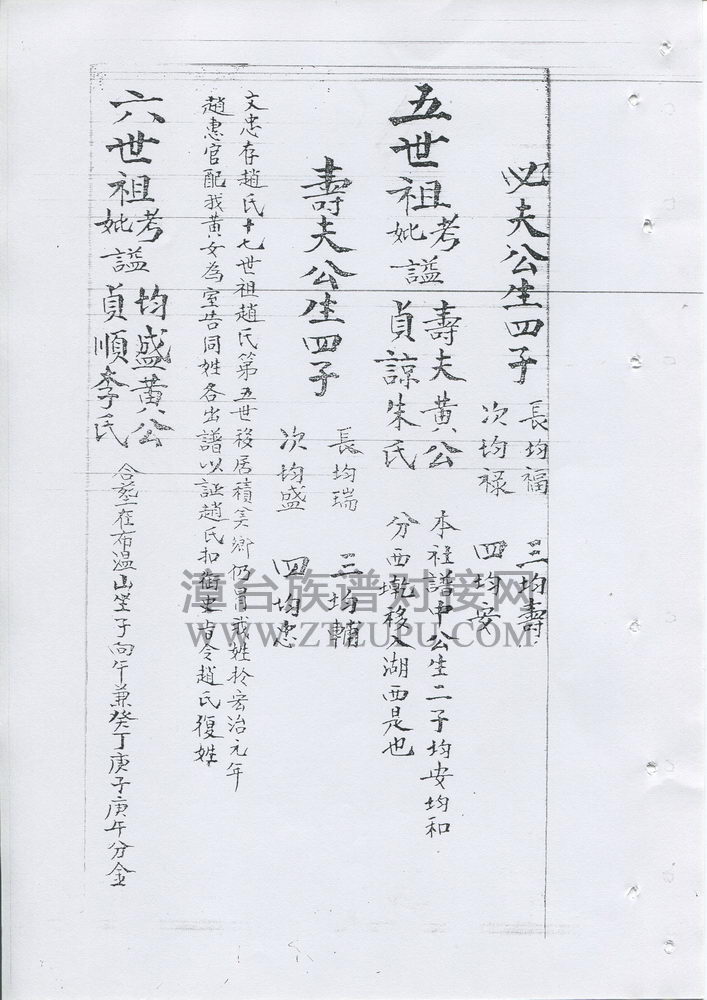 必夫公生四子
長均福 三均壽
次均祿 四均安
五世祖考壽夫黃公
妣謚貞諒朱氏
本祖譜中公生二子均安均和
分西乾移入湖西是也
壽夫公生四子
長均瑞 三均輔
次均盛 四均忠
文忠存趙氏十七世祖趙氏第五世移居積美鄉仍冒我姓於宏治元年
趙惠官配我黃女為室告同姓各出譜以証趙氏扣御史肯令趙氏復姓
六世祖考均盛黃公
妣謚貞順李氏
合塟在布溫山坐子向午兼癸丁庚子庚午分金
漳台族谱对接网
WWW.ZTZUPU.COM